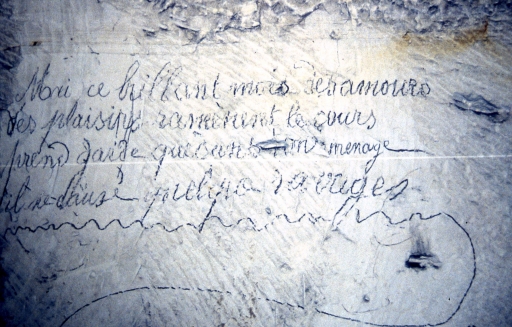 Mai ce brillant mois des amours
des plaisirs ramènent le cours
prend garde que dans ton ménage
il ne cause quelque ravages